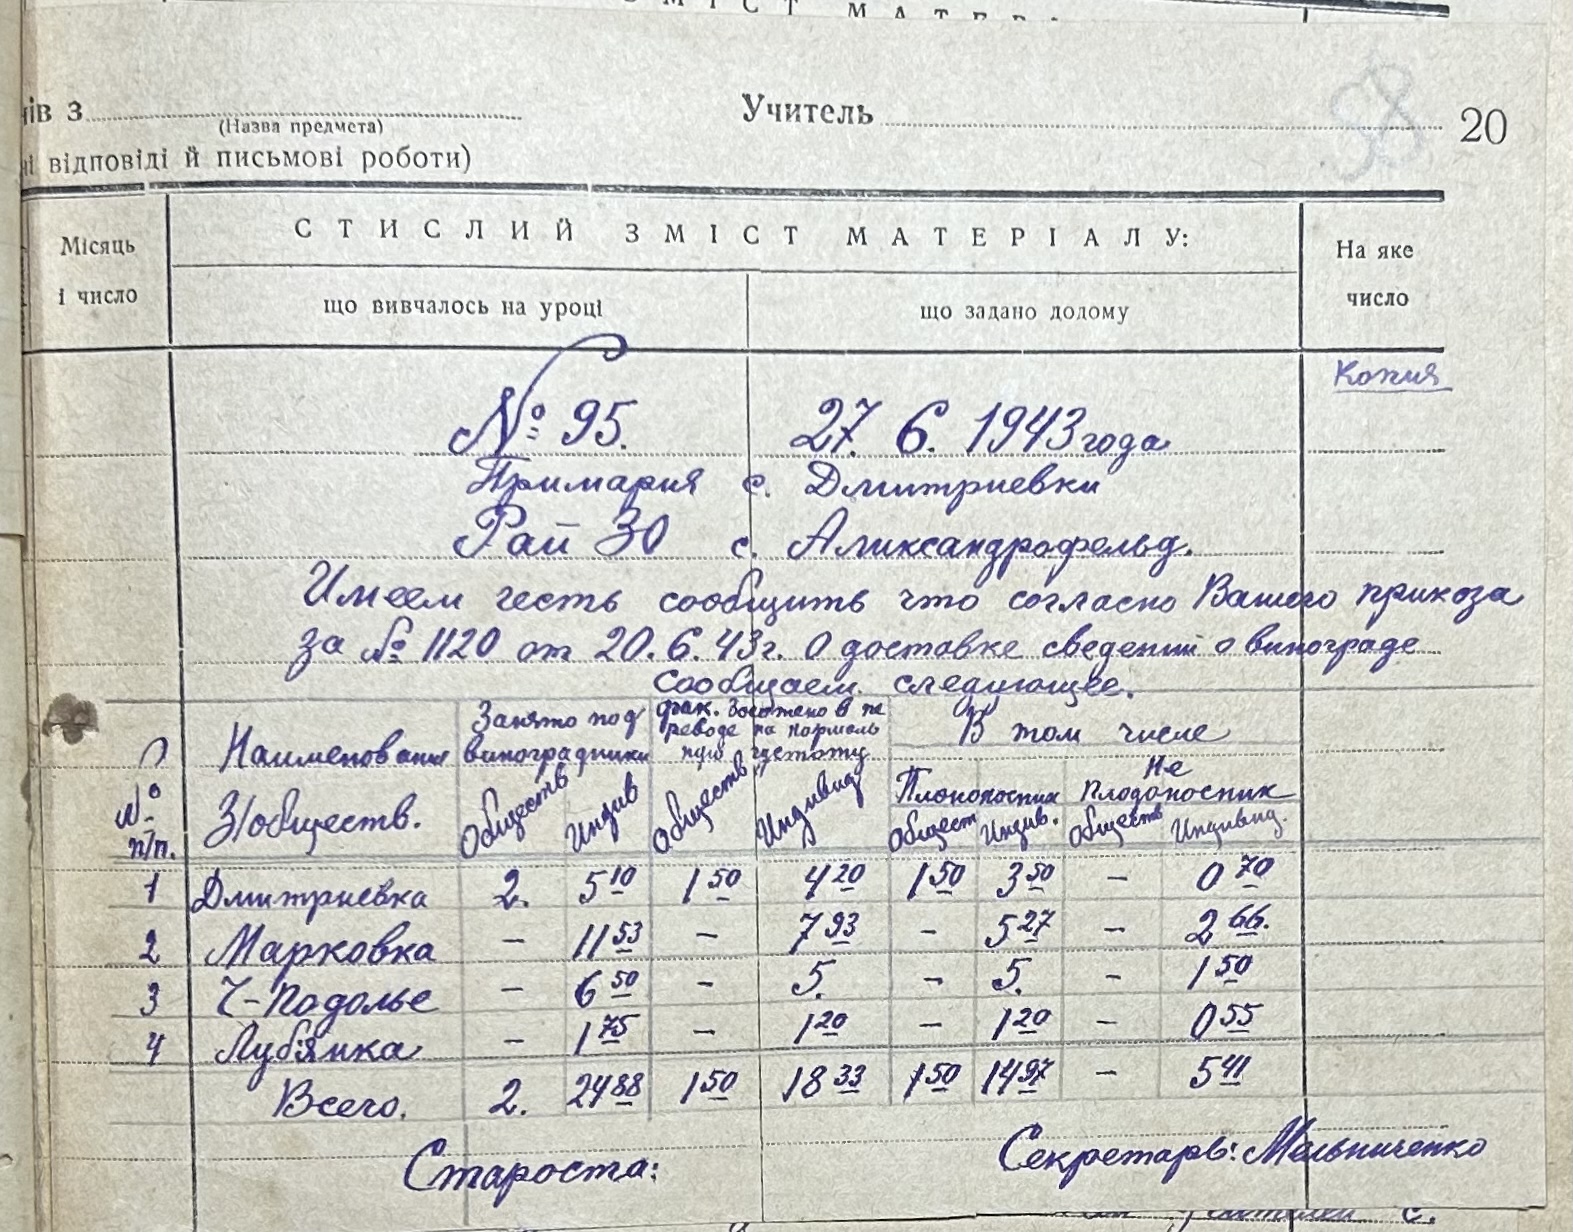 З М І С Т М А Т Е Р І
нів з
Учитель
58
20
(Назва предмета)
ні відповіді й письмові роботи)
Місяць і число
СТИСЛИЙ ЗМІСТ МАТЕРІАЛУ:
На яке число
що вивчалось на уроці
що задано додому
Копия
№ 95. 27. 6. 1943 года
Примария с. Дмитриевки
Рай ЗО с. Аликсандрофельд.
Имеем честь сообщить что согласно Вашого прикоза
за № 1120 от 20.6.43г. О доставке сведений о винограде
сообщаем следующее.
№ п/п. Наименования З/обществ. Занято под виноградники фак. в переводе на нормальную густоту В том числе
Плононосник Не плодоносник
Обществ Индив Обществ Индивид Общест Индив. Обществ Индивид.
1 Дмитриевка 2. 5 10 1 50 4 20 1 50 3 50 - 0 70
2 Марковка - 11 53 - 7 93 - 5 27 - 2 66.
3 Ч-Подолье - 6 50 - 5. - 5. - 1 50
4 Лубянка - 1 75 - 1 20 - 1 20 - 0 55
Всего. 2. 24 88 1 50 18 33 1 50 14 97 - 5 41
Староста: Секретарь: Мельниченко